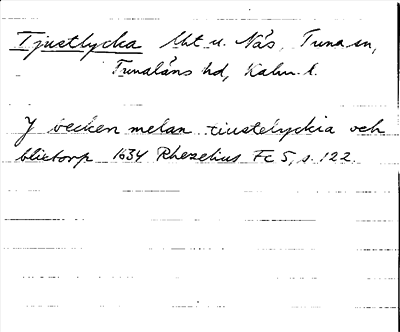 Tjustlycka Utt u. Näs, Tuna sn,
Tunaläns hd, Kalm. l.
J becken melan tiustelyckia och
blietorp 1634 Rhezelius Fc 5, s. 122.